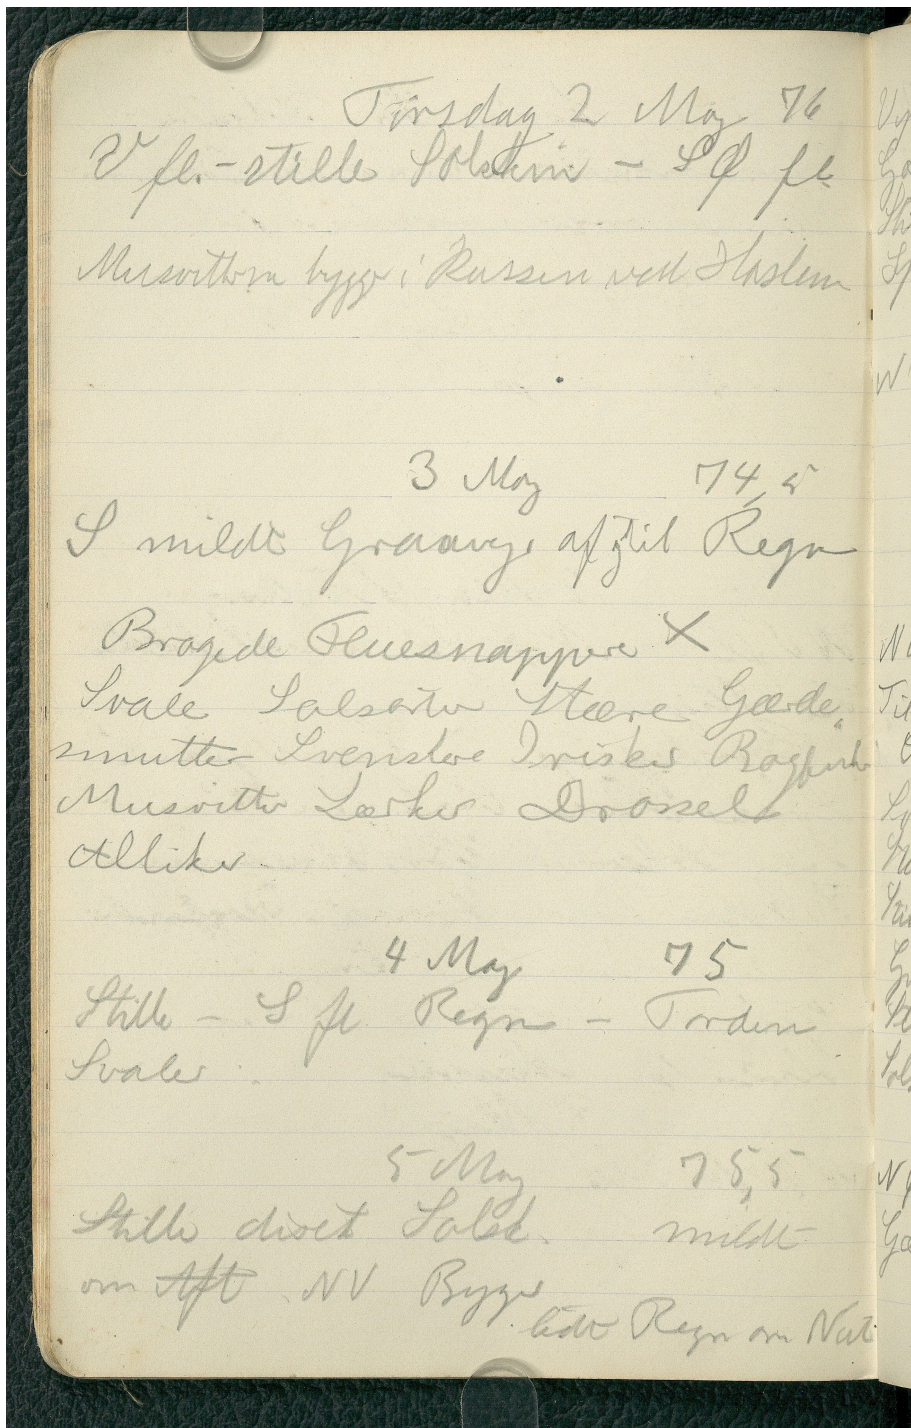 Torsdag 2 May 76
V fl. - stille Solskin - SØ fl.
Musvitterne bygger i Kassen ved Haslem
3 May 74,5
S mildt Graavejr af & til Regn
Brogede Fluesnappere X
Svale Solsorter Stære Gærde„
smutter Svenskere Irisker Bogfinker
Musvitter Lærker Drossel
Alliker
4 May 75
Stille - S fl Regn - Torden
Svaler
5 May 75,5
Stille diset Solsk. mildt
om Aft NV Byger
lidt Regn om Nat